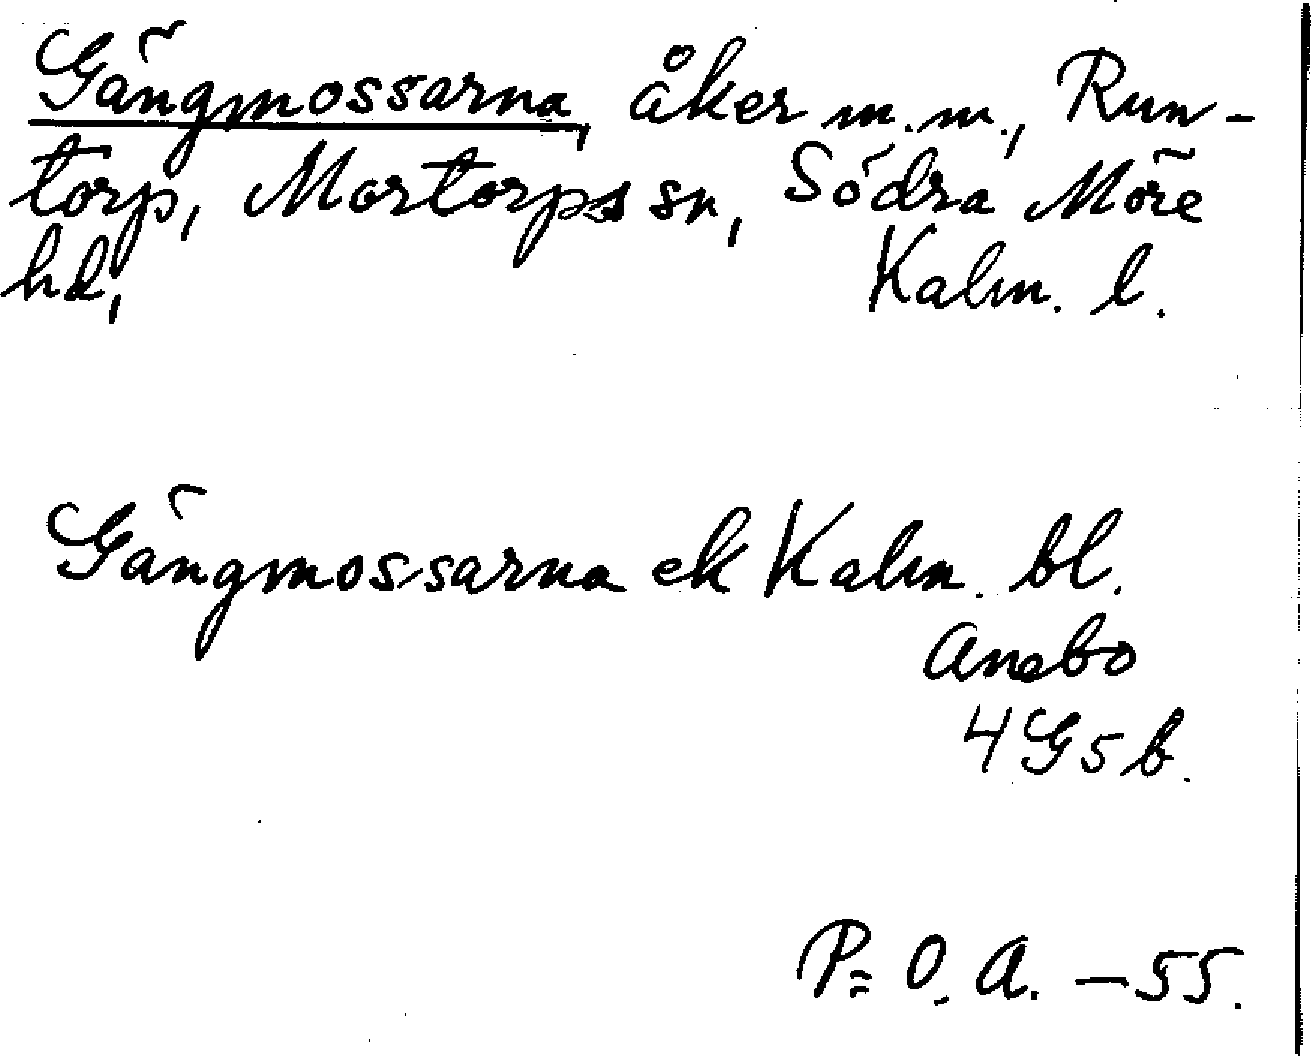 Gängmossarna, åker m.m., Run-
torp, Mortorps sn, Södra Möre
hd, Kalm. l.
Gängmossarna ek Kalm. bl.
Anebo
4G5b.
P=O.A. –55.